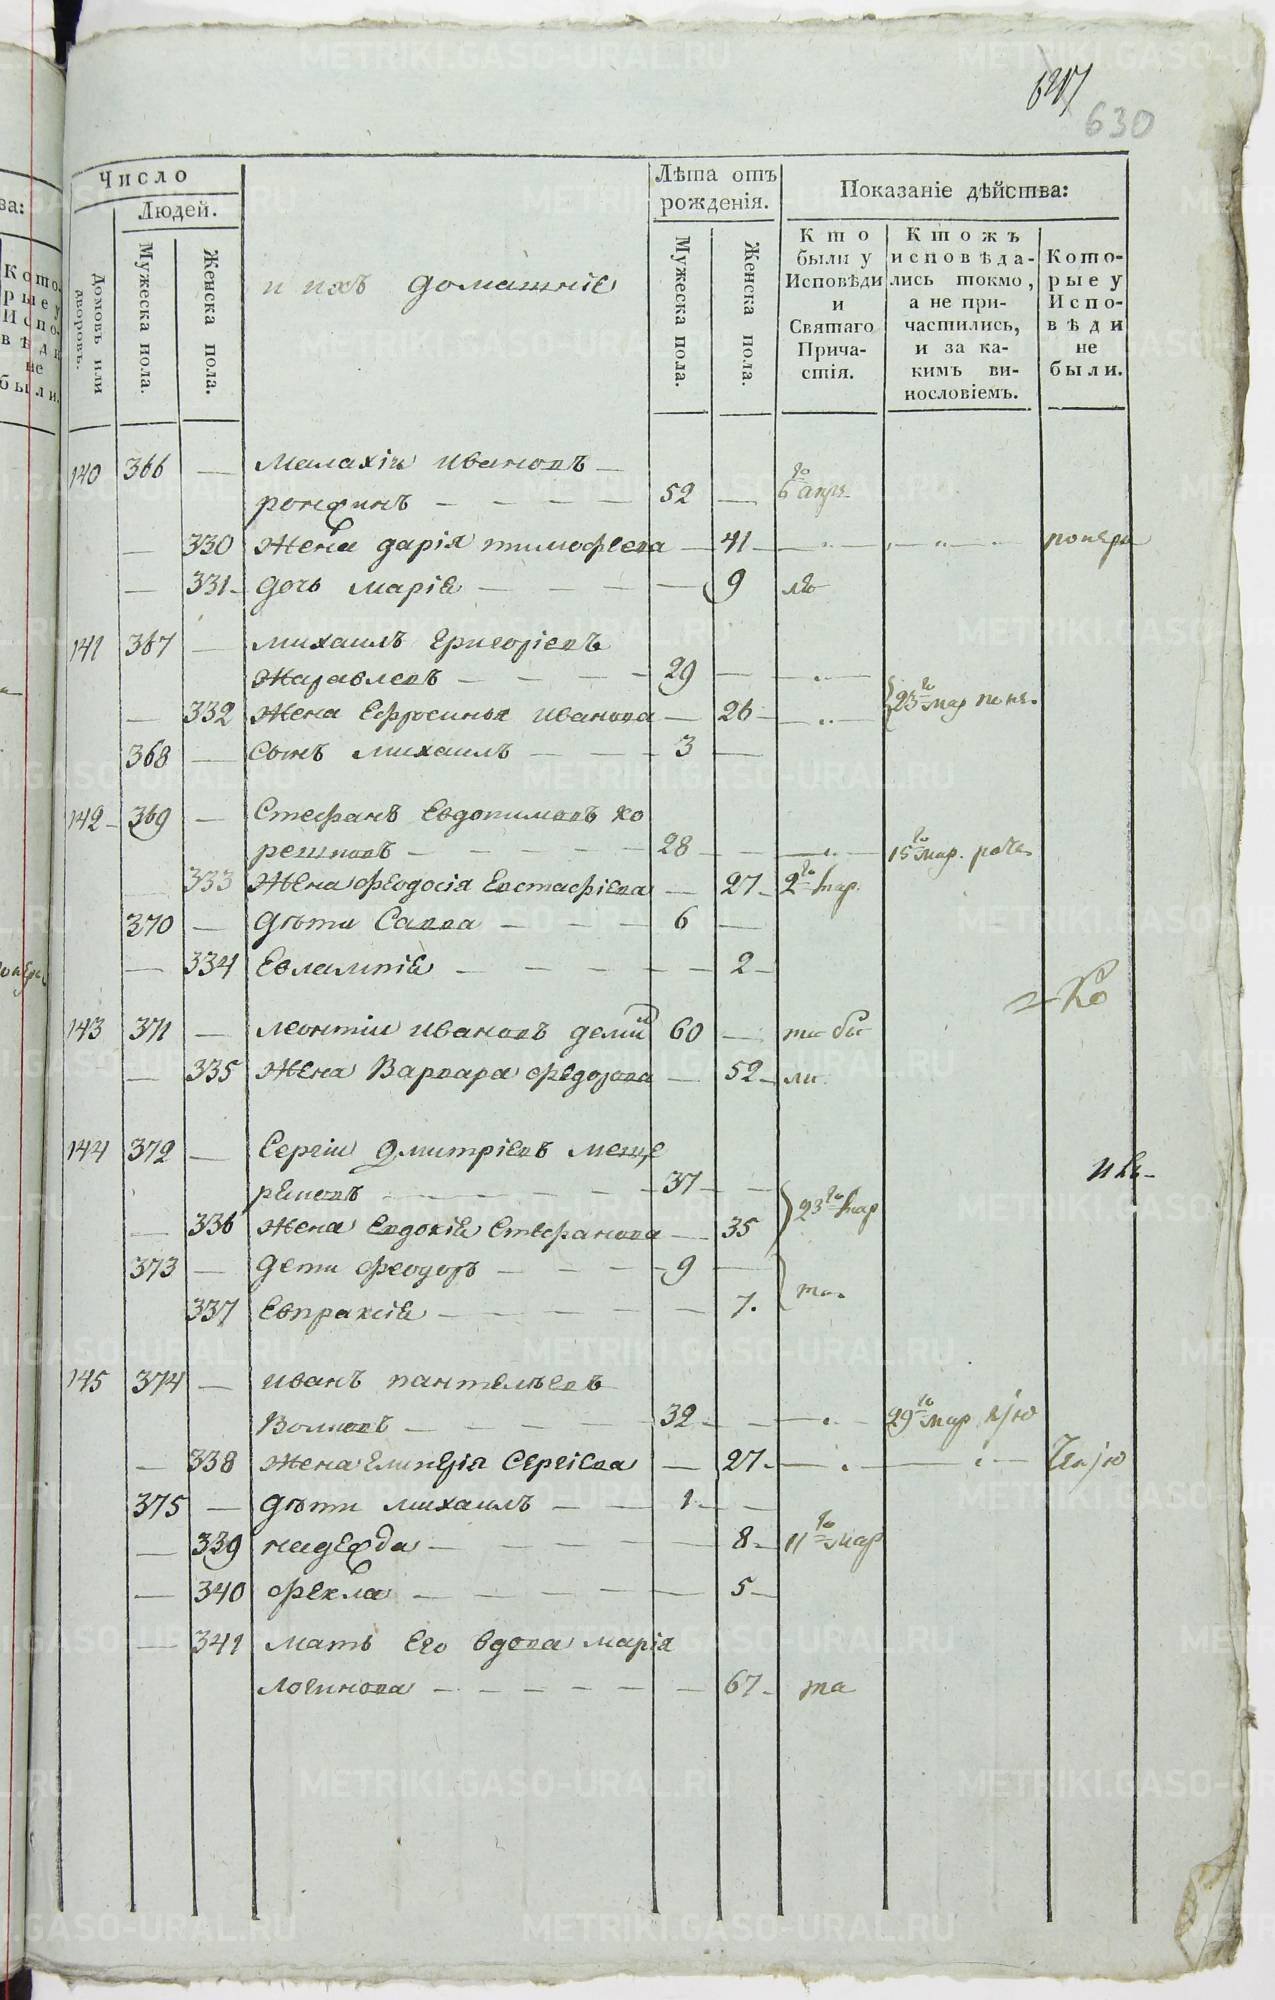 630
Число
Людей.
Домовъ или дворовъ.
Мужеска пола.
Женска пола.
и ихъ домашніе
Лѣта отъ рожденія.
Мужеска пола.
Женска пола.
Показаніе дѣйства:
Кто были у Исповѣди и Святаго Причастія.
Ктожъ исповѣдались токмо, а не причастились, и за какимъ винословіемъ.
Которые у Исповѣди не были.
140 366 — Малахіи Ивановъ —
52 — 6го апр.
— 330 Жена Дарія Тимофѣева — 41 —
— 331 Дочь Марія — 9
141 367 — Михаилъ Григоріевъ
Жаравлевъ — 29 —
— 332 Жена Ефросинья Иванова — 26 — 23го мар
368 — Сынъ Михаилъ — 3 —
142 369 — Стефанъ Евдокимовъ Хо
28 — 15го мар.
333 Жена Феодосія Евстафіева — 27 2го мар.
370 — Дѣти Савва — 6 —
— 334 Евлампія — 2
143 371 — Леонтіи Ивановъ 60 — бы
— 335 Жена Варвара Федорова — 52 ли
144 372 — Сергіи Дмитріевъ Меще
ряковъ — 37 — 23го мар
— 336 Жена Евдокія Стефанова — 35
373 — Дети Феодоръ — 9 —
337 Евпраксія — 7.
145 374 — Иванъ Пантелѣевъ
Волковъ — 32 — 29го мар
— 338 Жена Сергіева — 27
375 — Дѣти Михаилъ — 1 —
— 339 Надежда — 8 11го мар
— 340 Фекла — 5
— 341 Мать его вдова Марія
Логинова — 67
METRIKI.GASO-URAL.RU